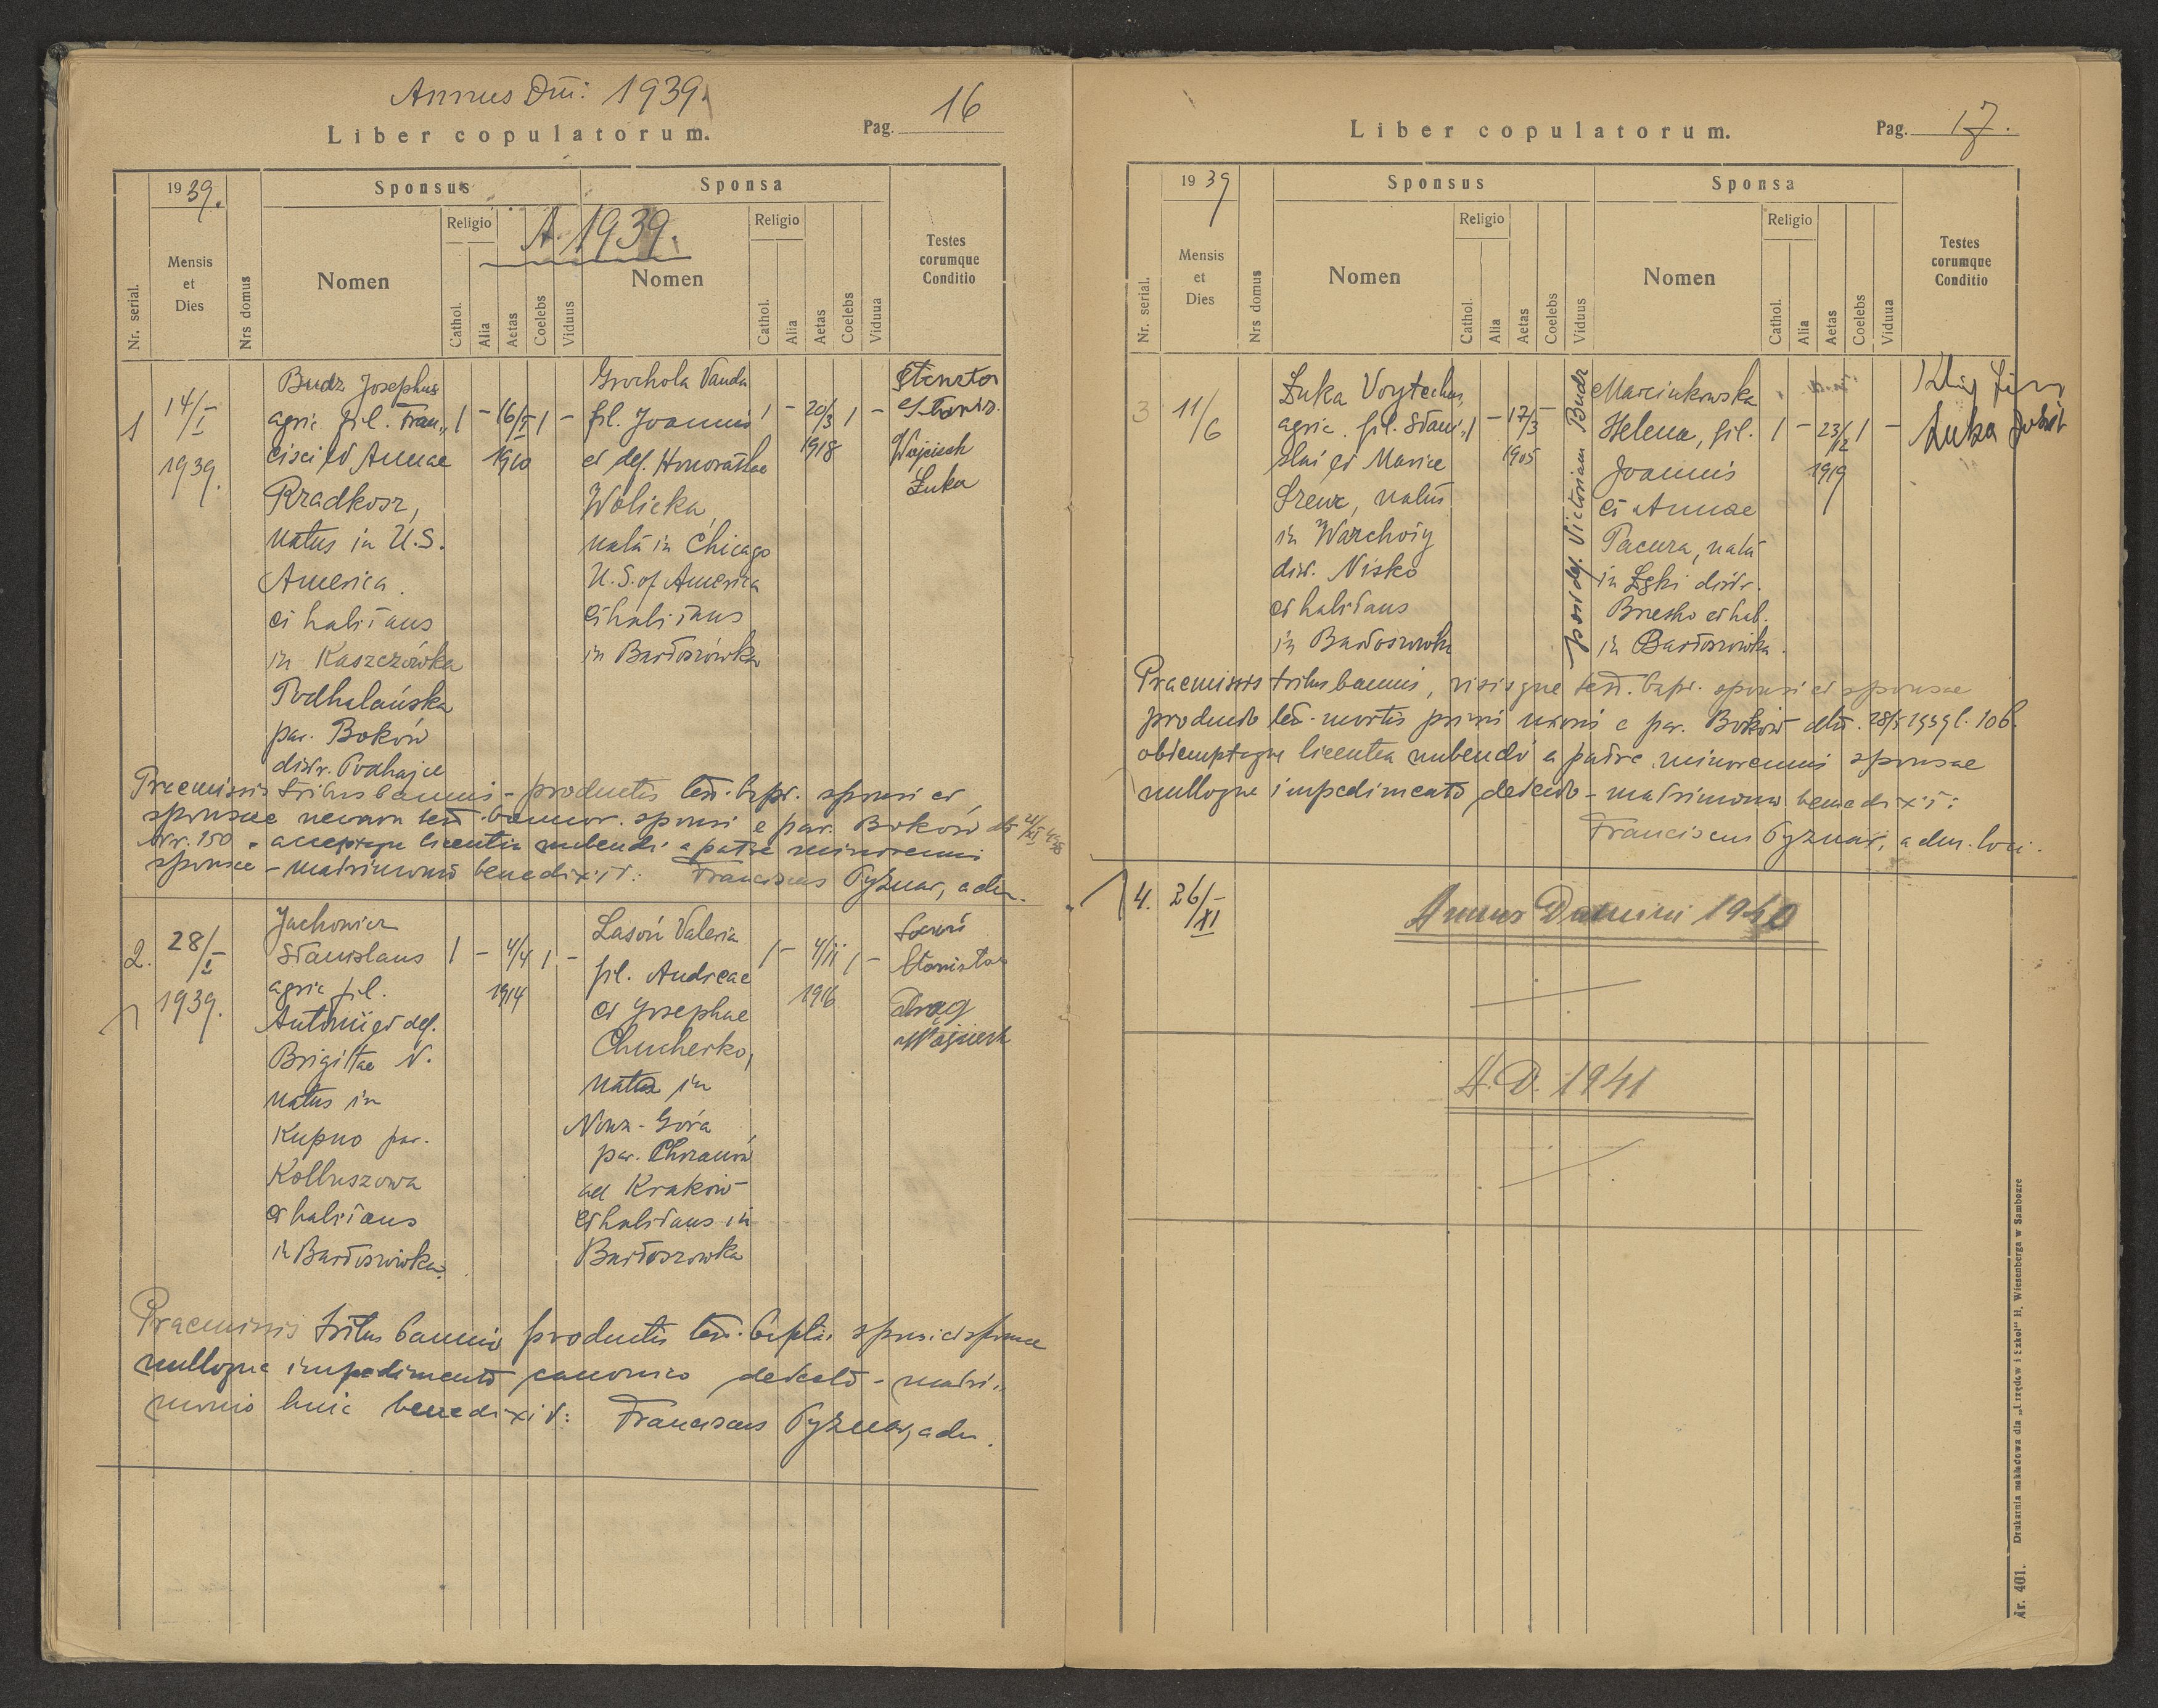 Annus Dni: 1939.
Liber copulatorum.
Pag. 16
1939.
Mensis et Dies
Nr. serial.
Nrs domus
Sponsus
Sponsa
A. 1939.
Nomen
Religio
Cathol.
Alia
Aetas
Coelebs
Viduus
Nomen
Religio
Cathol.
Alia
Aetas
Coelebs
Vidua
Testes
eorumque
Conditio
1
14/I
1939.
Budz Josephus
agric. fil. Fran„
cisci et Annae
Rzadkosz,
natus in U.S.
America.
et habitans
in Kaszczówka
Podhalańska
par. Boków
distr. Podhajce
1 - 16/I 1 -
1910
Grochola Vanda
fil. Joannis
et def. Honorathae
Wolicka,
nata in Chicago
U.S. of America
et habitans
in Bartoszówka
1 - 20/3 1 -
1918
Wojciech
Łuka
Praemissis tribus bannis - productis test. bapt. sponsi et
sponsae necnon test. bannor. sponsi e par. Boków
Nr. 150 - acceptaque licentia nubendi a patre minorenni
sponsae - matrimonio benedixit: Franciscus Pyznar, adm.
2.
28/I
1939.
Jachowicz
Stanislaus
agric. fil.
Antonii et def.
Brigittae N.
natus in
Kupno par.
Kolbuszowa
et habitans
in Bartoszówka.
1 - 4/4 1 -
1914
Lasoń Valeria
fil. Andreae
et Josephae
Chucherko,
nata in
Nowa-Góra
par. Chrzanów
ad Kraków
et habitans in
Bartoszowka
1 - 4/II 1 -
1916
Lasoń
Stanisław
Drąg
Wojciech
Praemissis tribus bannis productis test. bapt. sponsi et sponsae
nulloque impedimento canonico detecto - matri„
monio huic benedixit: Franciscus Pyznar, adm.
Liber copulatorum.
Pag. 17.
1939
Mensis et Dies
Nr. serial.
Nrs domus
Sponsus
Sponsa
Nomen
Religio
Cathol.
Alia
Aetas
Coelebs
Viduus
Nomen
Religio
Cathol.
Alia
Aetas
Coelebs
Vidua
Testes
eorumque
Conditio
3
11/6
Łuka Voytechus,
agric. fil. Stani„
slai et Mariae
Szewc, natus
in Warchoły
distr. Nisko
et habitans
in Bartoszowka
1 - 17/3 -
1905
post def. Victoriam Budz
Marcinkowska
Helena, fil.
Joannis
et Annae
Pacura, nata
in Łęki distr.
Brzesko et hab.
in Bartoszówka.
1 - 23/12 1 -
1919
Łuka Józef
Praemissis tribus bannis, visisque test. bapt. sponsi et sponsae
producto test. mortis primi uxoris e par. Boków dto. 28/5 1939 l. 106.
obtemptaque licentia nubendi a patre minorennis sponsae
nulloque impedimento detecto - matrimonio benedixit:
Franciscus Pyznar, adm. loci.
4. 26/XI
Annus Domini 1940
A. D. 1941
Nr. 401. Drukarnia nakładowa dla „Urzędów i Szkół" H. Wiesenberga w Samborze